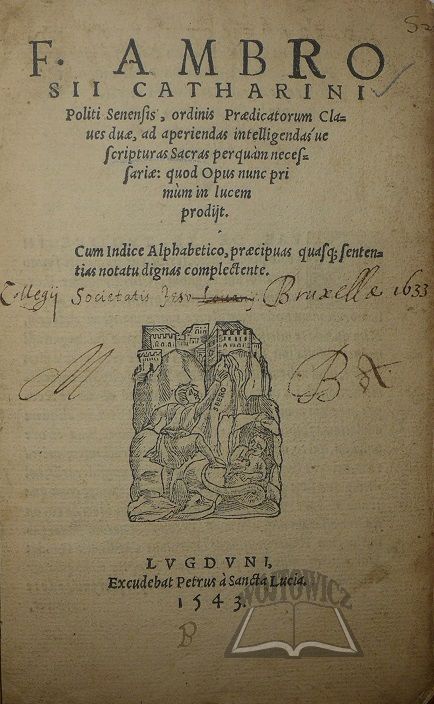 82
F. AMBRO
SII CATHARINI
Politi Senensis, ordinis Prædicatorum Cla-
ues duæ, ad aperiendas intelligendas'ue
scripturas Sacras perquàm neces-
sariæ: quod Opus nunc pri
mùm in lucem
prodijt.
Cum Indice Alphabetico, præcipuas quasq; senten-
tias notatu dignas complectente.
Collegij Societatis Jesu Louanij Bruxellæ 1633
M B
SPERO
LVGDVNI,
Excudebat Petrus à Sancta Lucia.
1543.
B
WOJTOWICZ